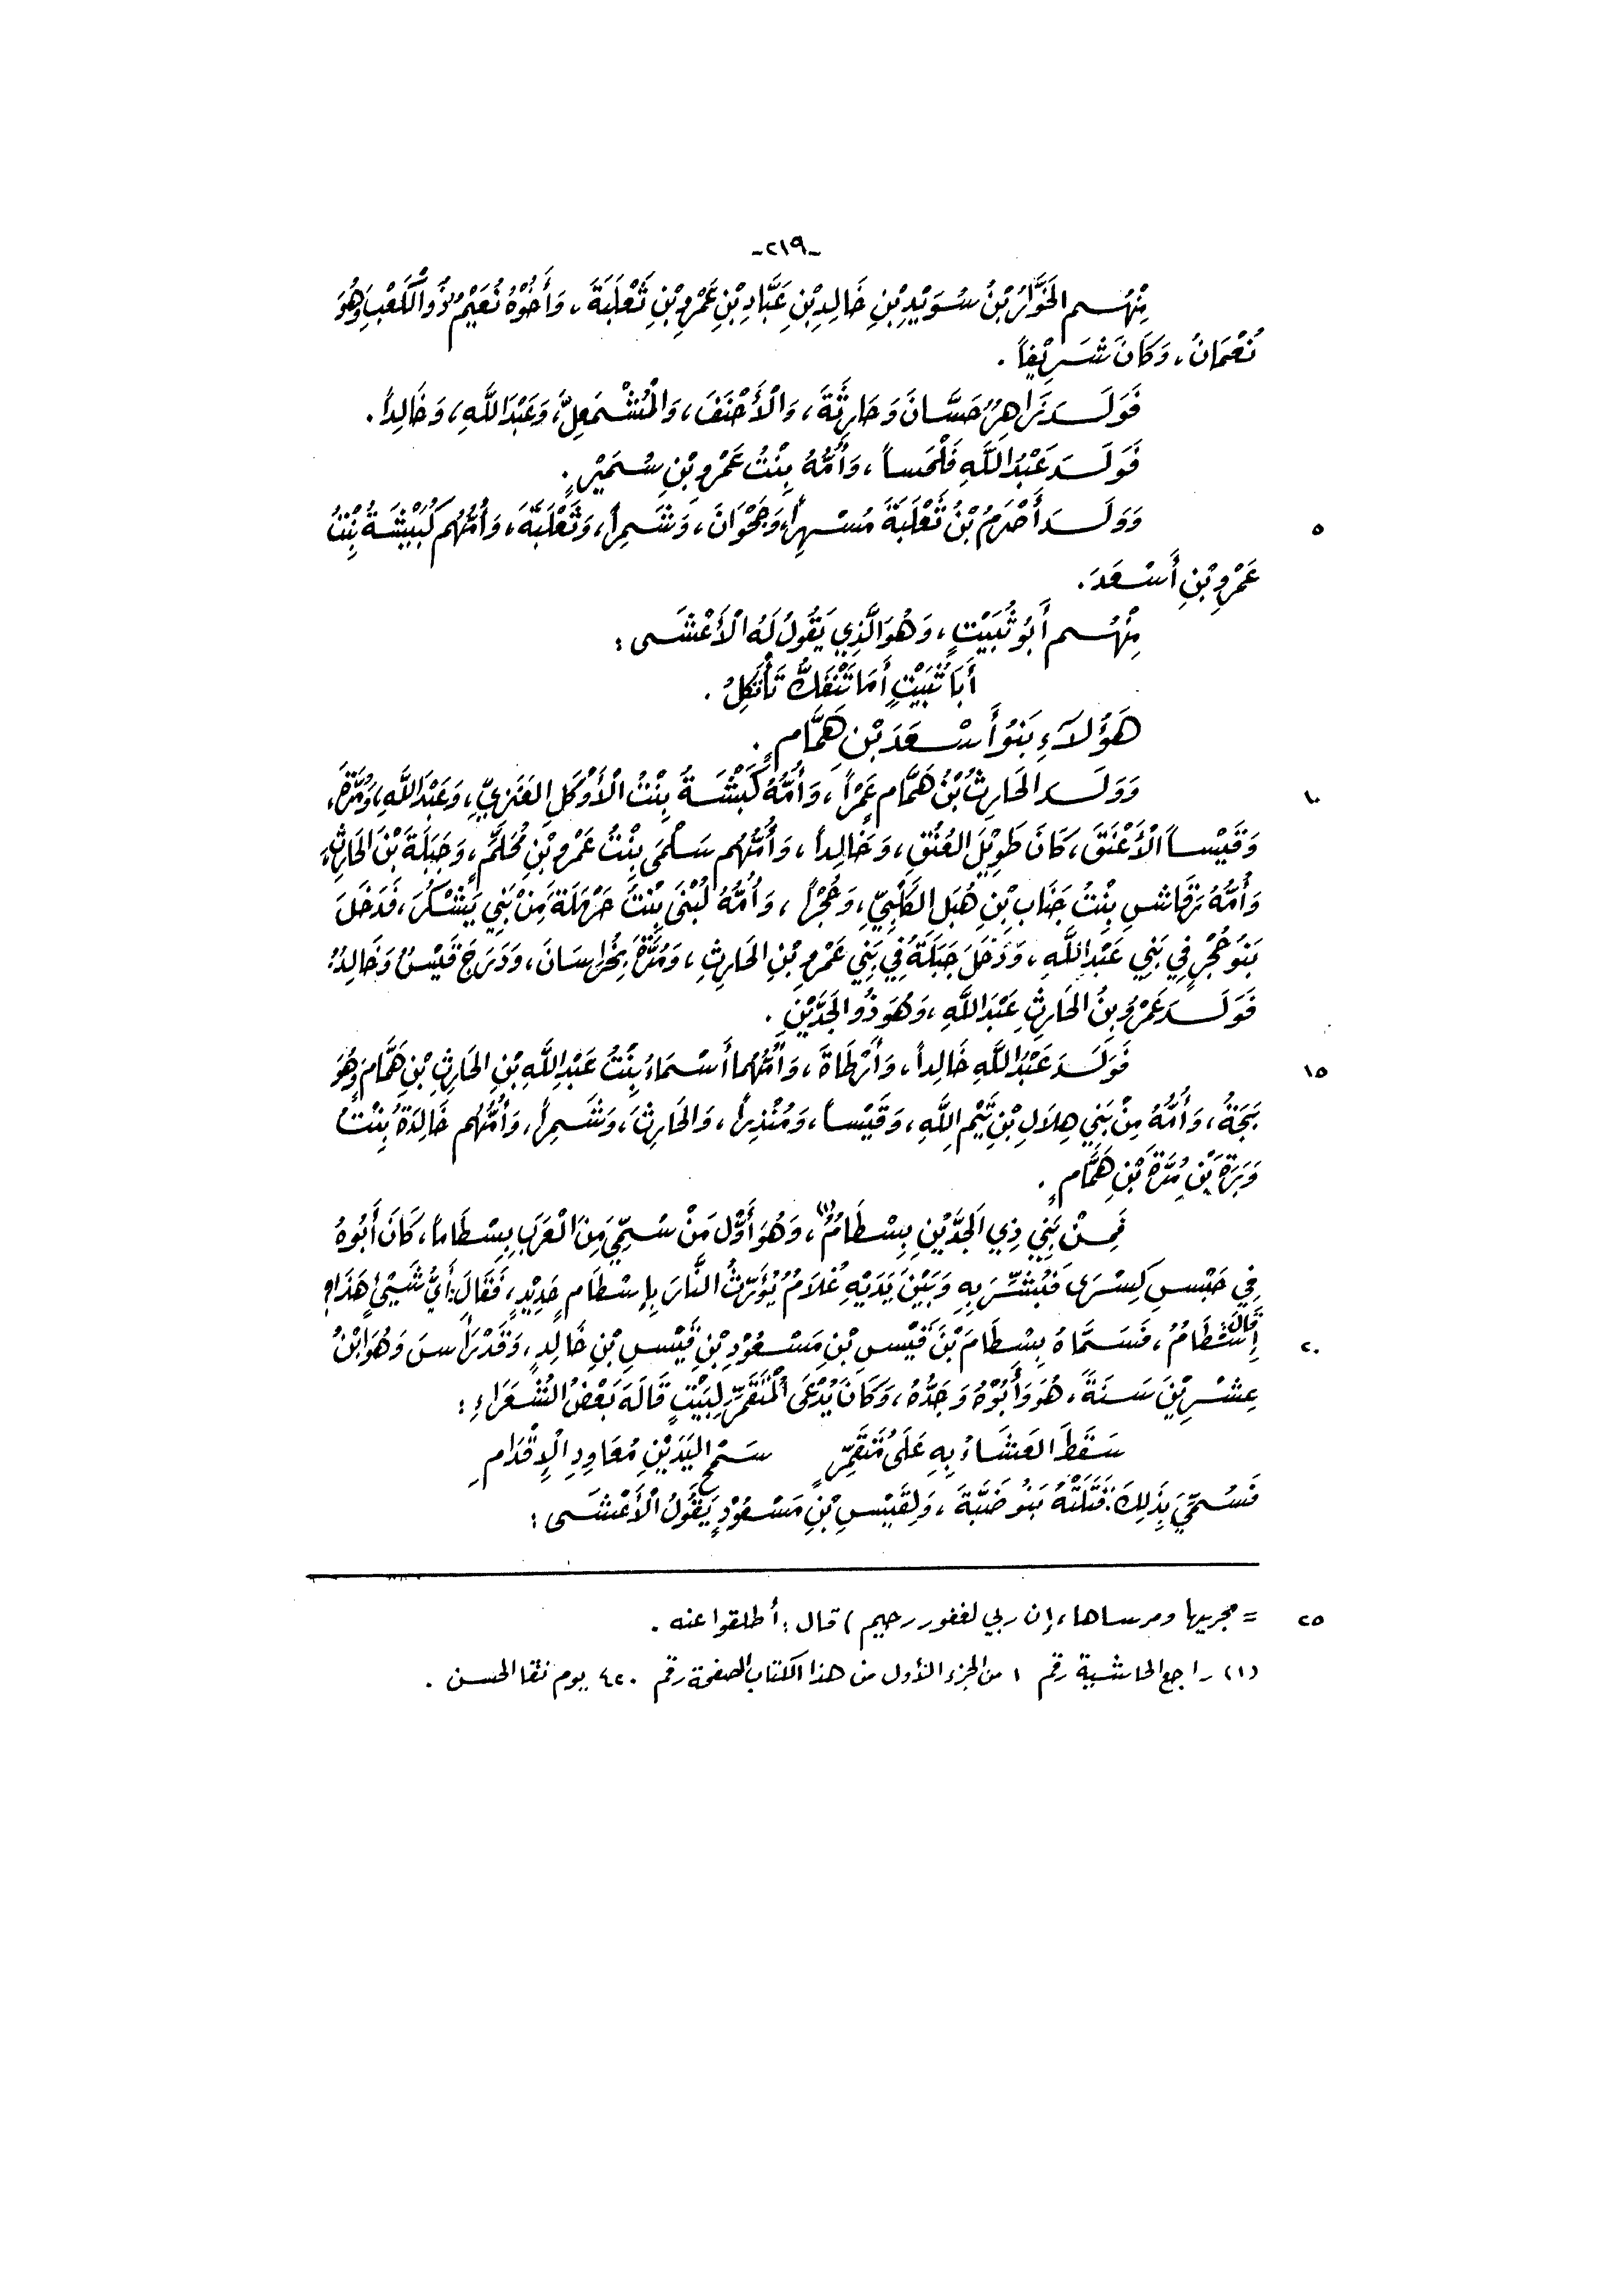 -٢١٩-
مِنْهُم الخَوَّارُ بْنُ سُوَيْدِ بْنِ خَالِدِ بْنِ عَبَّادِ بْنِ عَمْرِو بْنِ ثَعْلَبَةَ، وَأَخُوْهُ نُعَيْمُ ذُو الْكَعْبِ، وَهُوَ
نُعْمَانُ، وَكَانَ شَرِيْفاً.
فَوَلَدَ زَاهِرُ حَسَّانَ وَحَارِثَةَ، وَالْأَحْنَفَ، وَالْمُشْمَعِلَّ، وَعَبْدَ اللَّهِ، وَخَالِداً.
فَوَلَدَ عَبْدُ اللَّهِ فَلْحَساً، وَأُمُّهُ بِنْتُ عَمْرِو بْنِ سُمَيْرٍ.
٥ وَوَلَدَ أَحْرَمُ بْنُ ثَعْلَبَةَ مُسْهِراً، وَجَحْوَانَ، وَشَمِراً، وَثَعْلَبَةَ، وَأُمُّهُم كُبَيْشَةُ بِنْتُ
عَمْرِو بْنِ أَسْعَدَ.
مِنْهُم أَبُو ثُبَيْتٍ، وَهُوَ الَّذِي يَقُولُ لَهُ الْأَعْشَى:
أَبَا ثُبَيْتٍ أَمَا تَنْفَكُّ تَأْتَكِلُ.
هَؤُلَاءِ بَنُو أَسْعَدَ بْنِ هَمَّامٍ.
١٠ وَوَلَدَ الحَارِثُ بْنُ هَمَّامٍ عَمْراً، وَأُمُّهُ كَبْشَةُ بِنْتُ الْأَوْكَلِ العَنَزِيِّ، وَعَبْدَ اللَّهِ، وَمُرَّةَ،
وَقَيْساً الْأَعْنَقَ، كَانَ طَوِيْلَ العُنُقِ، وَخَالِداً، وَأُمُّهُم سَلْمَى بِنْتُ عَمْرِو بْنِ مُحَلِّمٍ، وَجَبَلَةَ بْنَ الحَارِثِ،
وَأُمُّهُ رَقَاشِ بِنْتُ جَنَابِ بْنِ هُبَلِ الكَلْبِيِّ، وَحُجْراً، وَأُمُّهُ لُبْنَى بِنْتُ حَرْمَلَةَ مِنْ بَنِي يَشْكُرَ، فَدَخَلَ
بَنُو حُجْرٍ فِي بَنِي عَبْدِ اللَّهِ، وَدَخَلَ جَبَلَةُ فِي بَنِي عَمْرِو بْنِ الحَارِثِ، وَمُرَّةُ بِخُرَاسَانَ، وَدَرَجَ قَيْسُ وَخَالِدُ.
فَوَلَدَ عَمْرُو بنُ الحَارِثِ عَبْدَ اللَّهِ، وَهُوَ ذُو الجَدَّيْنِ.
١٥ فَوَلَدَ عَبْدُ اللَّهِ خَالِداً، وَأَرْطَاةَ، وَأُمُّهُما أَسْمَاءُ بِنْتُ عَبْدِ اللَّهِ بْنِ الحَارِثِ بْنِ هَمَّامٍ، وَهُوَ
بَجَةُ، وَأُمُّهُ مِنْ بَنِي هِلَالِ بْنِ تَيْمِ اللَّهِ، وَقَيْساً، وَمُنْذِراً، وَالحَارِثَ، وَشَمِراً، وَأُمُّهُم خَالِدَةُ بِنْتُ
وَبَرَةَ بْنِ مُرَّةَ بْنِ هَمَّامٍ.
فَمِنْ بَنِي ذِي الجَدَّيْنِ بِسْطَامُ(١)، وَهُوَ أَوَّلُ مَنْ سُمِّيَ مِنَ الْعَرَبِ بِسْطَاماً، كَانَ أَبُوهُ
فِي حَبْسِ كِسْرَى فَبُشِّرَ بِهِ وَبَيْنَ يَدَيْهِ غُلَامُ يُؤَرِّثُ النَّارَ بِإِسْطَامِ حَدِيْدٍ، فَقَالَ: أَيُّ شَيْئٍ هَذَا؟
٢٠ قَالَ: إِسْطَامُ، فَسَمَّاهُ بِسْطَامَ بْنَ قَيْسِ بْنِ مَسْعُوْدِ بْنِ قَيْسِ بْنِ خَالِدٍ، وَقَدْ رَأَسَ وَهُوَ ابْنُ
عِشْرِيْنَ سَنَةً، هُوَ وَأَبُوْهُ وَجَدُّهُ، وَكَانَ يُدْعَى الْمُتَقَمِّرَ لِبَيْتٍ قَالَهُ بَعْضُ الشُّعَرَاءِ:
سَقَطَ العَشَاءُ بِهِ عَلَى مُتَقَمِّرٍ سَمْحِ اليَدَيْنِ مُعَاوِدِ الْإِقْدَامِ
فَسُمِّيَ بِذَلِكَ. فَقَتَلَتْهُ بَنُو ضَبَّةَ، وَلِقَيْسِ بْنِ مَسْعُوْدٍ يَقُولُ الْأَعْشَى:
٢٥ = مجريها ومرساها، إن ربي لغفور رحيم) قال: أطلقوا عنه.
(١) راجع الحاشية رقم ١ من الجزء الأول من هذا الكتاب الصفحة رقم ٤٢٠ يوم نقا الحسن.